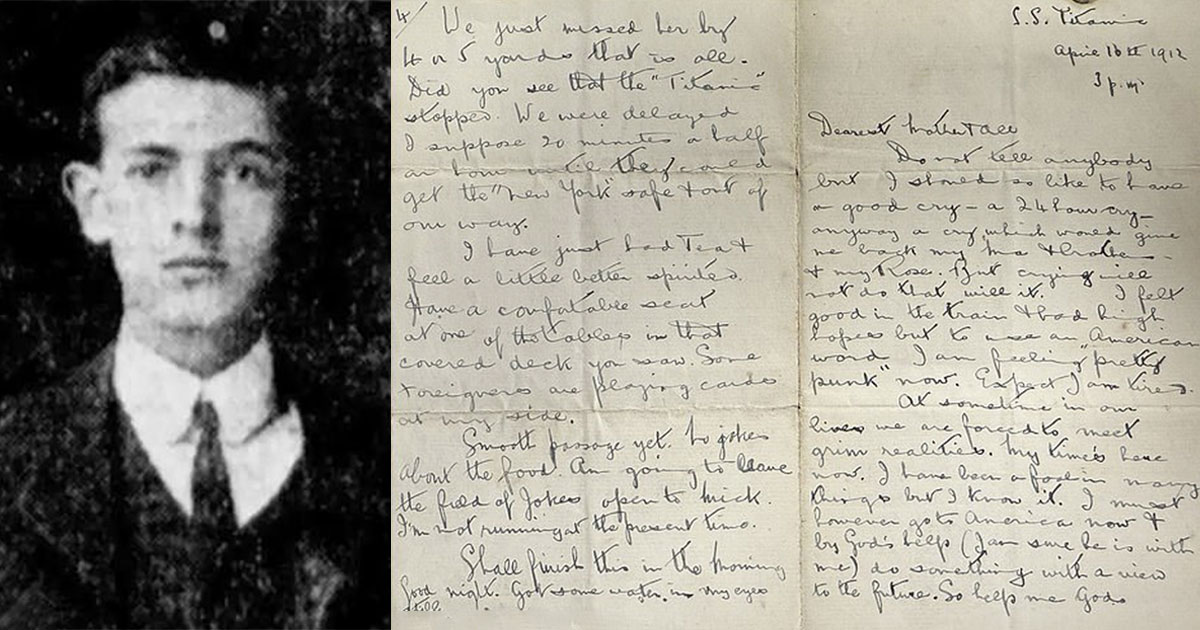 4/ We just missed her by
4 or 5 yards that is all.
Did you see that the "Titanic"
stopped. We were delayed
I suppose 20 minutes a half
an hour until they could
get the "New York" safe & out of
our way.
I have just had Tea &
feel a little better spirited.
Have a comfortable seat
at one of the tables in that
covered deck you saw. Some
foreigners are playing cards
at my side.
Smooth passage yet. No jokes
about the food. Am going to leave
the field of Jokes open to Mick.
I'm not running at the present time.
Shall finish this in the morning
Good night. Got some water in my eyes
S.S. Titanic
April 10th 1912
3 p.m.
Dearest Mother & all
Do not tell anybody
but I should so like to have
a good cry - a 24 hour cry -
anyway a cry which would give
me back my Ma & brothers -
& my Rose. But crying will
not do that will it. I felt
good in the train & had high
hopes but to use an "American
word I am feeling pretty
punk" now. Expect I am tired.
At sometime in our
lives we are forced to meet
grim realities. My time's here
now. I have been a fool in many
things but I know it. I must
however go to America now &
by God's help (I am sure he is with
me) do something with a view
to the future. So help me God.